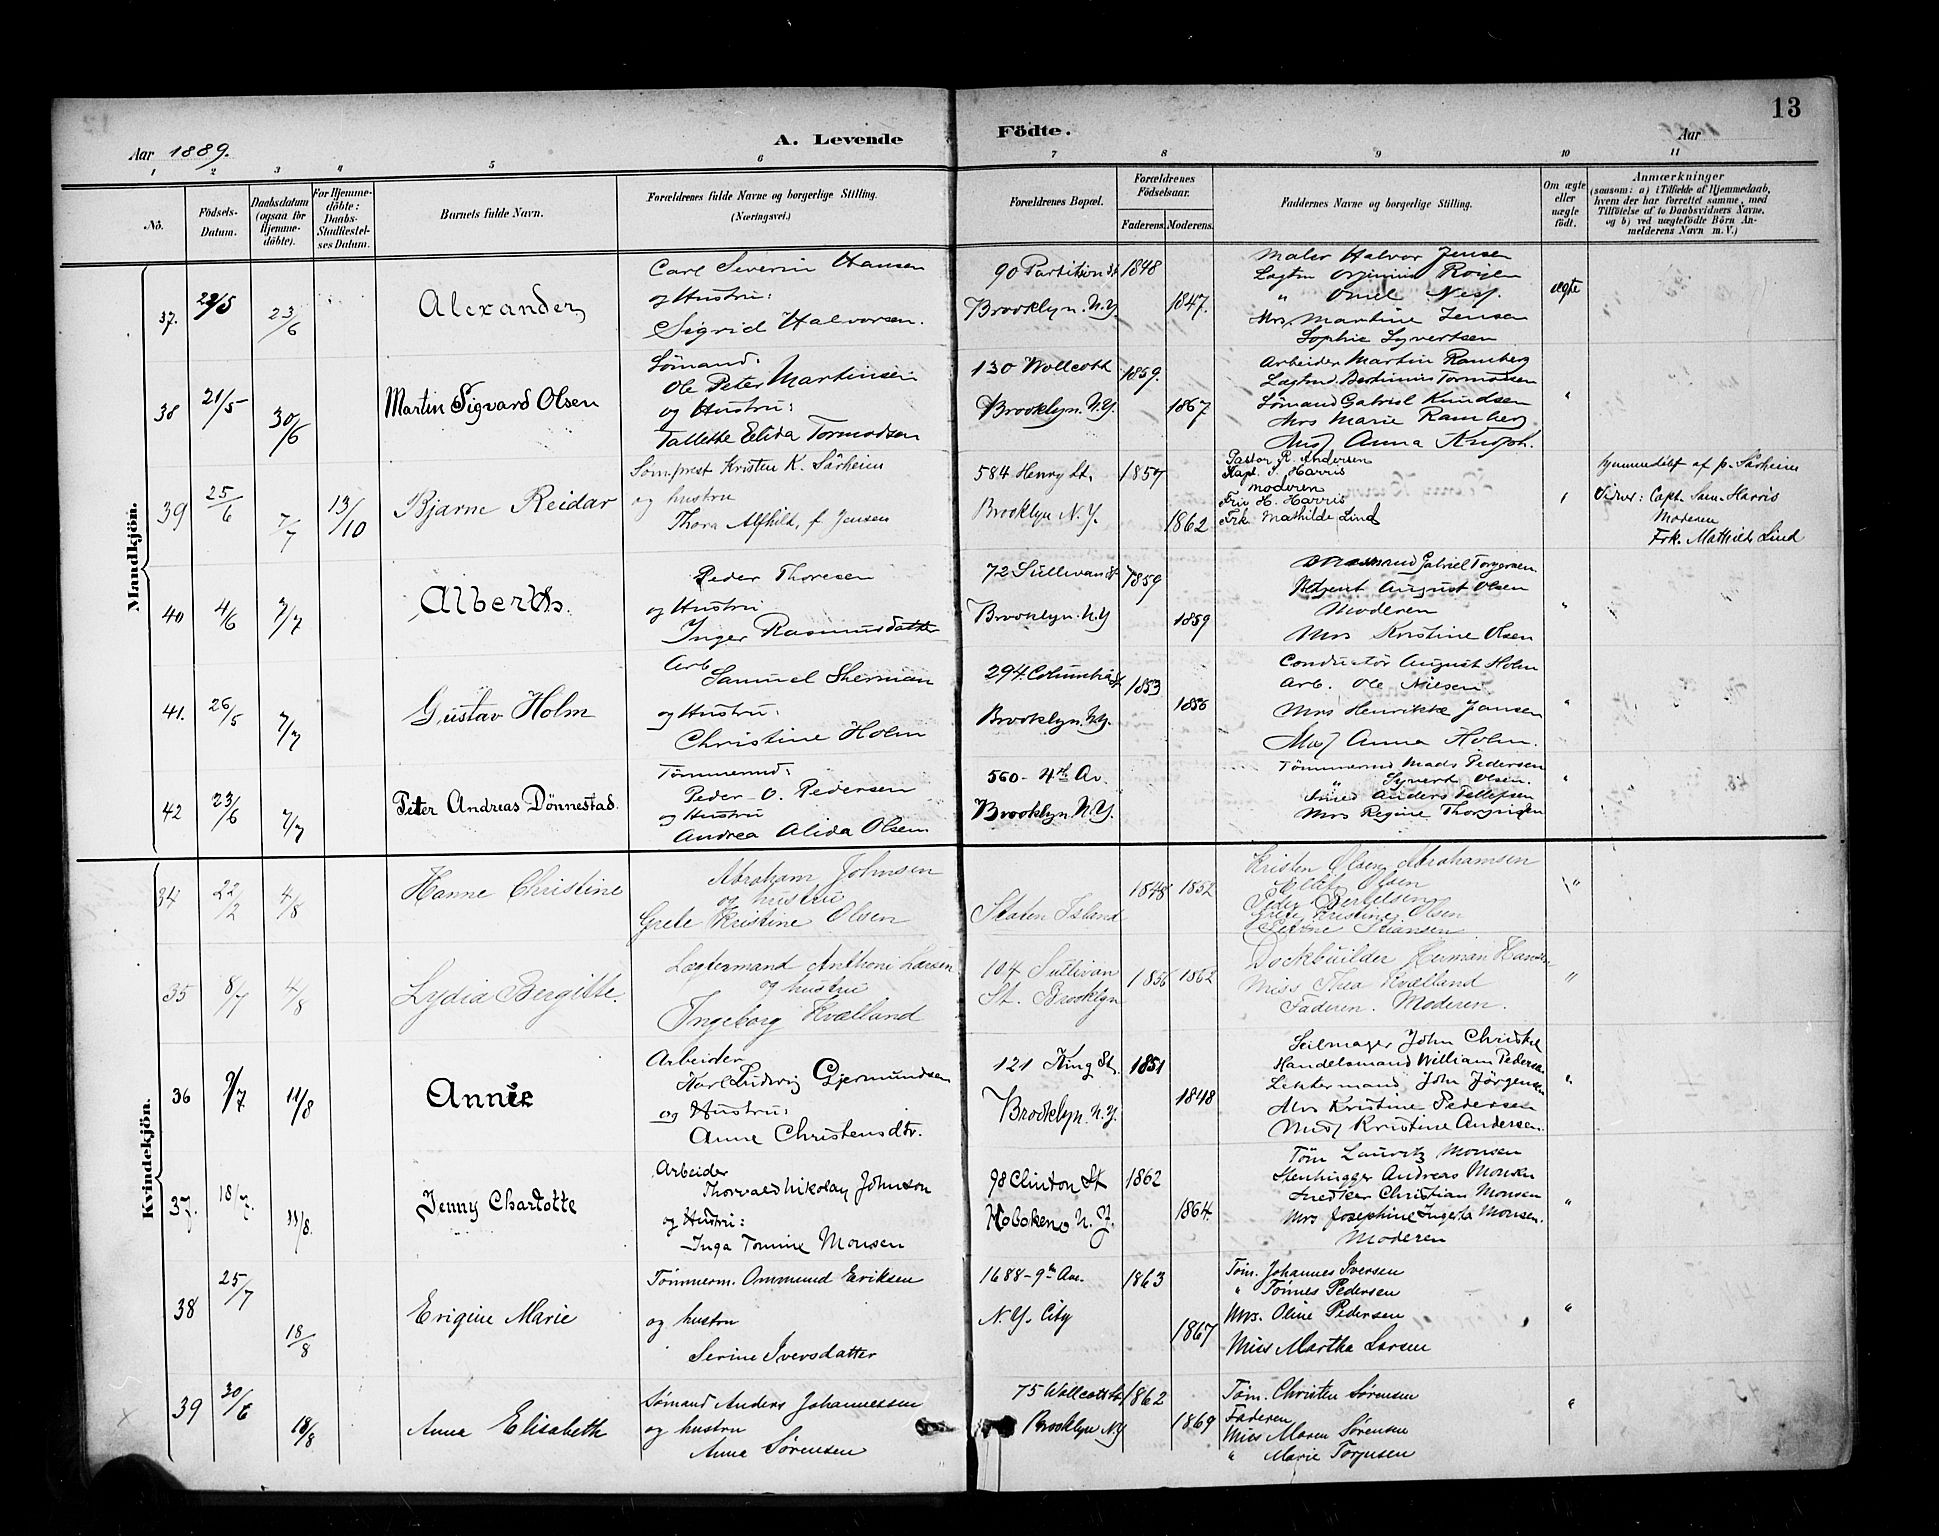 13
Aar 1889.
A. Levende
Födte.
Aar
1 2 3 4 5 6 7 8 9 10 11
No.
Födsels-
Datum.
Daabsdatum
(ogsaa for
Hjemme-
döbte).
For Hjemme-
döbte:
Daabs-
Stadfæstel-
ses Datum.
Barnets fulde Navn.
Forældrenes fulde Navne og borgerlige Stilling.
(Næringsvei.)
Forældrenes Bopæl.
Forældrenes
Födselsaar.
Faderens. Moderens.
Faddernes Navne og borgerlige Stilling.
Om ægte
eller
uægte
födt.
Anmærkninger
(saasom: a) i Tilfælde af Hjemmedaab,
hvem der har forrettet samme, med
Tilföielse af to Daabsvidners Navne,
og b) ved uægtefödte Börn An-
melderens Navn m. V.)
Mandkjön.
37. 23/6 Alexander
Carl Severin Hansen
og Hustru:
Sigrid Halvorsen.
90 Partition St
Brooklyn. N.Y.
1848 1847.
Maler Halvor Jensen
Mrs Martine Jensen
Sophie Syvertsen
ægte
38 21/5 30/6 Martin Sigvard Olsen
Sømand:
Ole Peter Martinsen
og Hustru:
Tallette Elida Tormodsen
130 Wollcott
Brooklyn. N.Y.
1859. 1867
Arbeider Martin Ramberg
Sømand Gabriel Knudsen
Mrs Marie Ramberg
Anna Knoph.
"
39 25/6 7/7 13/10 Bjarne Reidar
Sømprest Kristen K. Sårheim
og hustru
Thora Alfhild, f. Jensen
584 Henry St.
Brooklyn N.Y.
1857 1862
Pastor R. Andersen
Kapt. S. Harris
Moderen
Fru H. Harris
Frk. Mathilde Lind
"
hjemmedöbt af p. Sårheim
Vidner: Capt. Sam. Harris
Moderen
Frk. Mathilde Lind
40 4/6 7/7 Albert
Peder Thoresen
og Hustru
Inger Rasmusdatter
72 Sullivan St
Brooklyn. N.Y
1859 1859
Gabriel Torgersen
August Olsen
Moderen
Mrs Kristine Olsen
"
41. 26/5 7/7 Gustav Holm
Arb
Samuel Sherman
og Hustru:
Christine Holm
294. Columbia St
Brooklyn. N.Y.
1853
Conductor August Holm
Arb. Ole Nielsen
Mrs Henrikke Jansen
Anna Holm.
"
42 23/6 7/7 Peter Andreas Dönnestad.
Tömmermd:
Peder O. Pedersen
og Hustru
Andrea Alida Olsen
560 - 4th Av.
Brooklyn. N.Y.
Tömmermd Mads Pedersen
" Syvert Olsen.
Smed Anders Tellefsen
Mrs Regine
"
Kvindekjön.
34 22/2 4/8 Hanne Christine
Abraham Johnsen
og hustru
Grete Kristine Olsen
Staten Island
1848 1852
Kristen Olsen Abrahamsen
Olsen
Peder Bertelsen
Grete Kristine Olsen
"
35 8/7 4/8 Lydia Bergitte.
Lægtermand Anthoni Larsen
og hustru
Ingeborg Kvælland
104 Sullivan
St. Brooklyn
1856 1862
Dockbuilder Herman Hansen
Miss Thea Kvælland
Faderen. Moderen.
"
36 9/7 11/8 Annie
Arbeider
Karl Ludvig Gjermundsen
og Hustru:
Anne Christensdtr.
121 King St.
Brooklyn. N.Y.
1851 1848
Seilmager John Christie
Handelsmand William Pedersen
Lektermand John Jörgensen
Mrs Kristine Pedersen
Miss Kristine Andersen.
"
37. 18/7 11/8. Jenny Charlotte
Arbeider
Thorvald Nikolay Johnson
og Hustru:
Inga Tomine Monsen
98 Clinton St
Hoboken N.Y.
1862 1864.
Töm Lauritz Monsen
Stenhugger Andreas Monsen
Snedker Christian Monsen
Mrs Josephine Ingerta Monsen.
Moderen
"
38 25/7 18/8 Erigine Marie
Tømmerm. Ommund Eriksen
og hustru
Serine Iversdatter
1688 - 9th Ave.
N.Y. City
1863 1867
Tøm. Johannes Iversen
" Tønnes Pedersen
Mrs. Oline Pedersen
Miss Martha Larsen
"
39 30/6 18/8 Anna Elisabeth
Sømand Anders Johannessen
og hustru
Anna Sørensen
75 Wollcott St
Brooklyn N.Y
1862 1869
Tøm. Christen Sørensen
Faderen
Miss Maren Sørensen
" Marie Torjusen
"